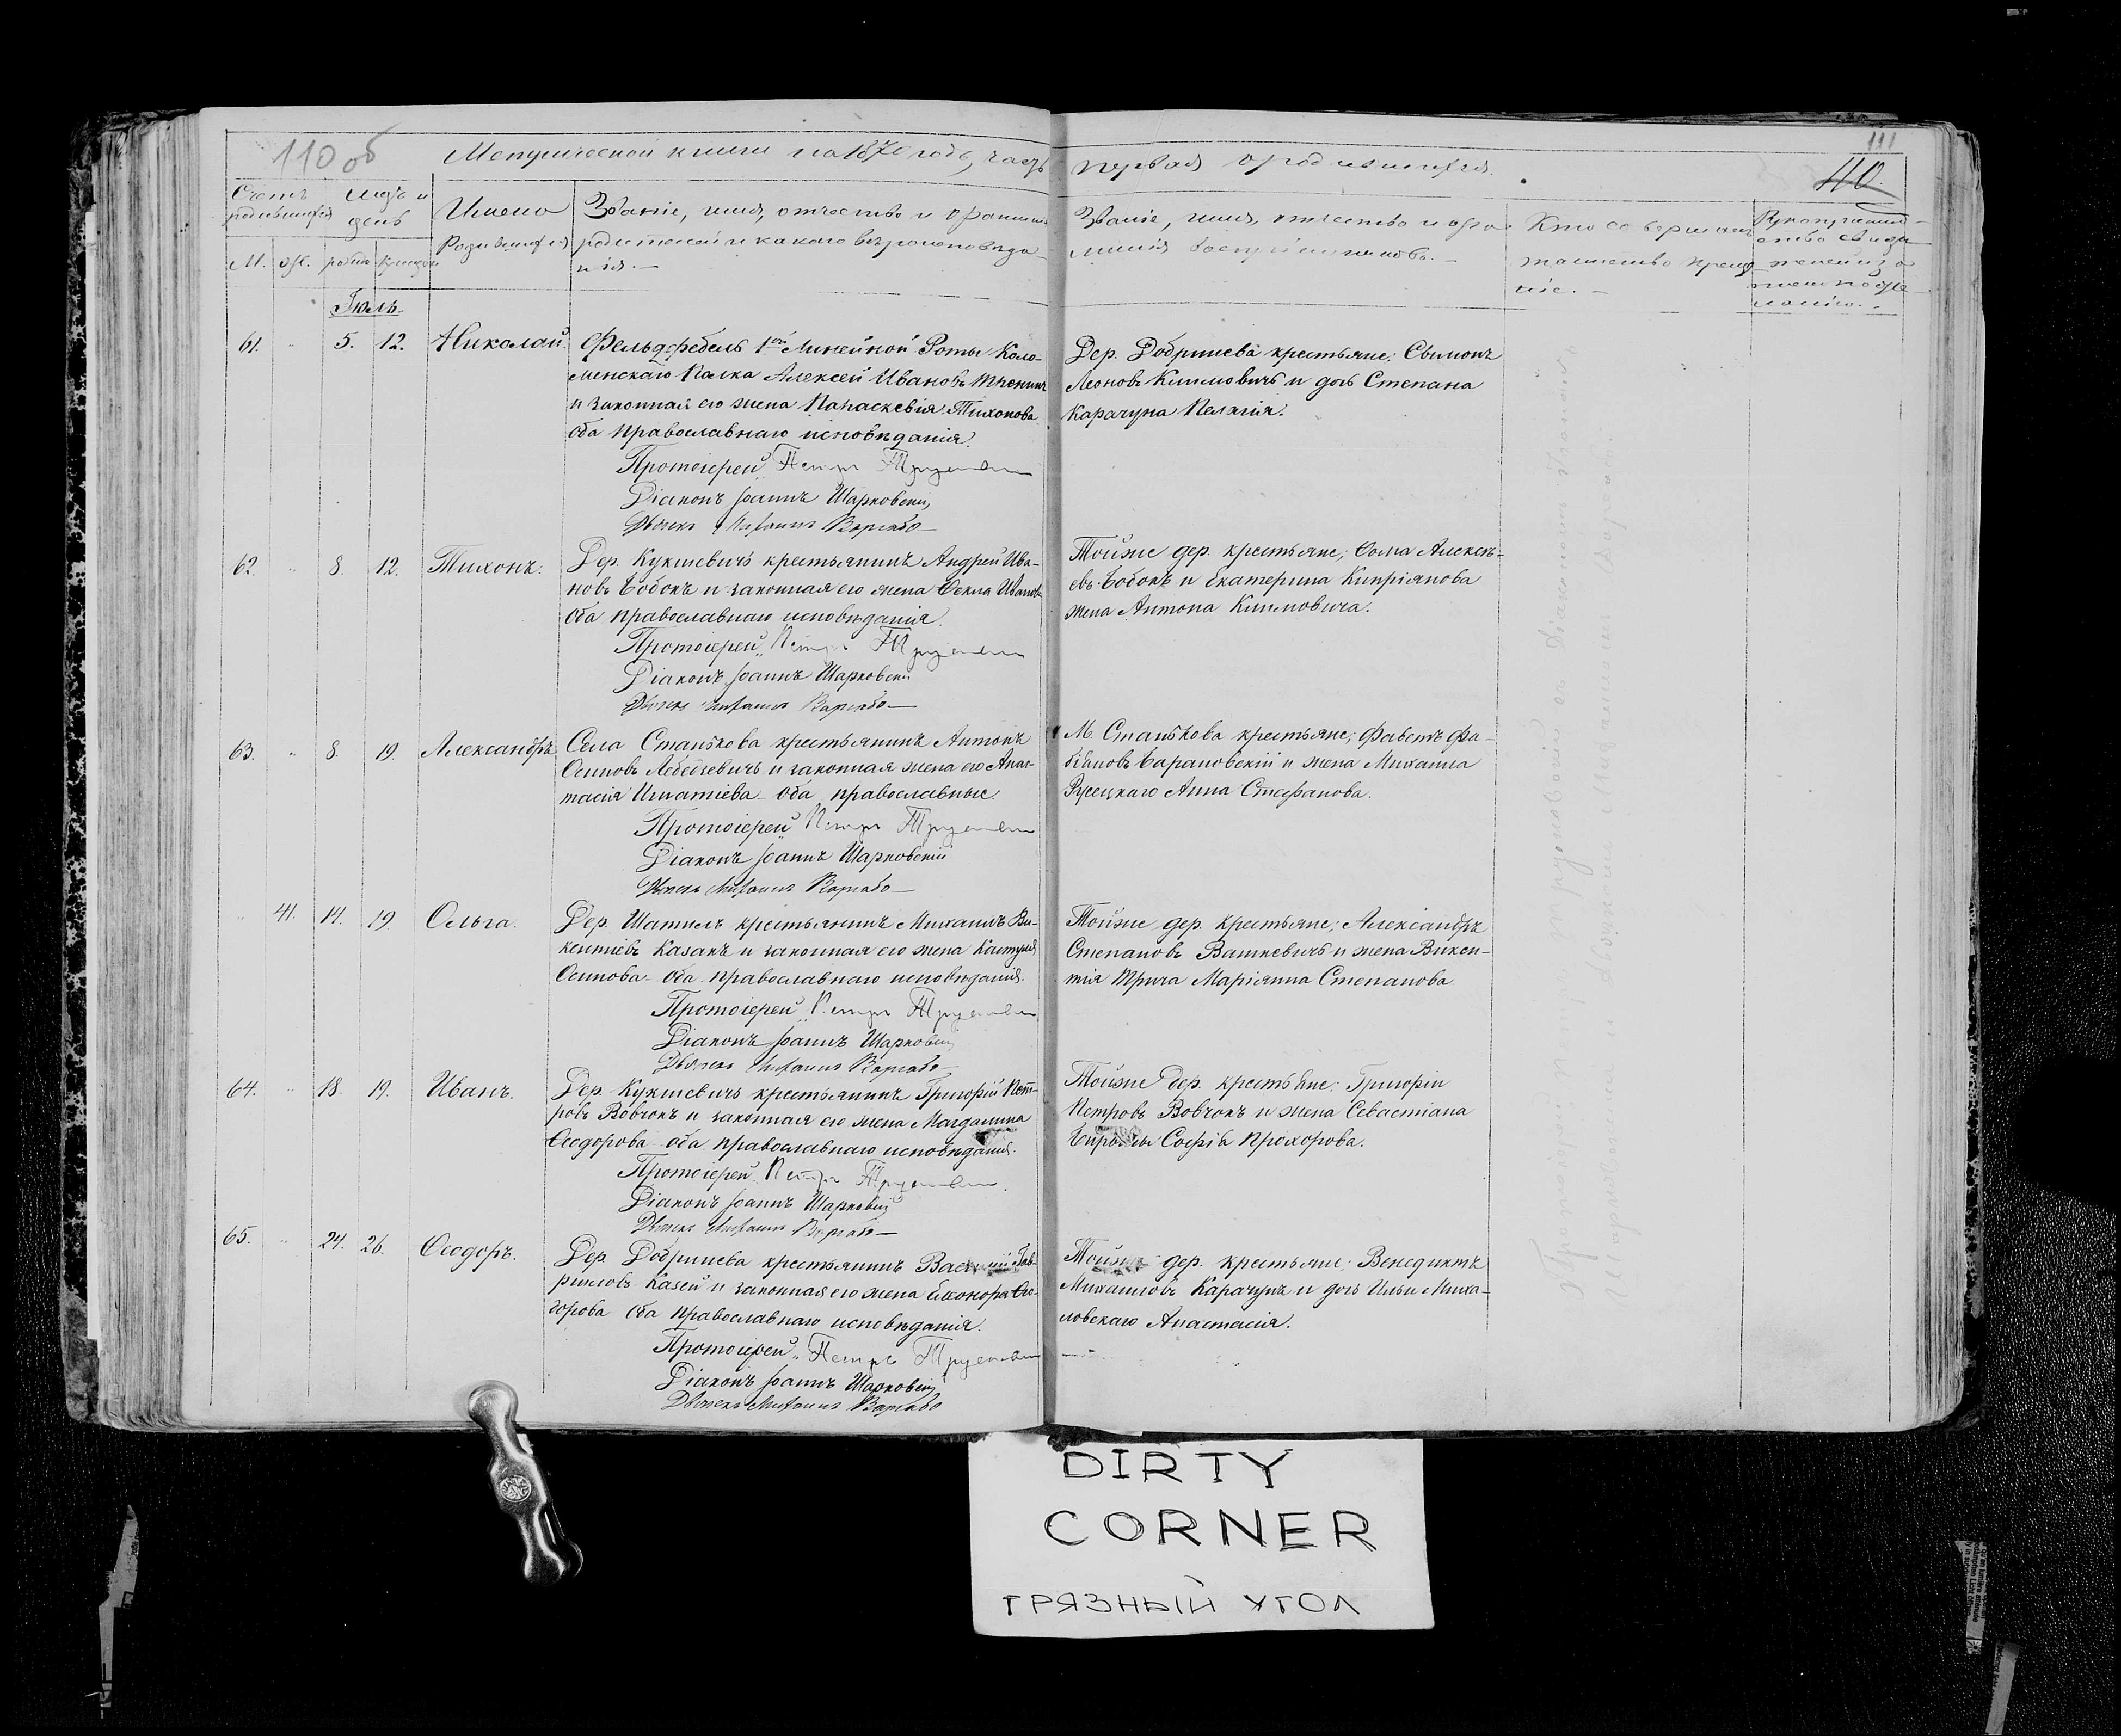 110 об
111
110.
Метрической книги на 1870 годъ, часть первая о родившихся.
Счетъ родившихся
М. Ж.
Мѣс. и день
рожд. крещен.
Имена
Родившихся
Званіе, имя, отчество и фамилія
родителей и какого вѣроисповѣда-
нія.—
Званіе, имя, отчество и фа-
милія воспріемниковъ.—
Кто совершалъ
таинство креще-
нія.—
Рукоприклад-
ство свидѣ-
телей
Іюль.
61. 5. 12. Николай.
Фельдфебель 1ой Линейной Роты Коло-
менскаго Полка Алексей Ивановъ
и законная его жена Параскевія Тихонова
оба православнаго исповѣданія.
Протоіерей Петръ
Діаконъ Іоаннъ Шарковскій
Михаилъ
Дер. Добринева крестьяне: Сымонъ
Леоновъ Климовичъ и дочь Степана
Карачуна Пелагія.
62. 8. 12. Тихонъ.
Дер. Кукшевичъ крестьянинъ Андрей Ива-
новъ Бобокъ и законная его жена Ѳекла Иванова
оба православнаго исповѣданія.
Протоіерей Петръ
Діаконъ Іоаннъ Шарковскій
Михаилъ
Тойже дер. крестьяне; Ѳома Алексѣ-
евъ Бобокъ и Екатерина Кипріянова
жена Антона Климовича.
63. 8. 19. Александръ
Села Станькова крестьянинъ Антонъ
Осиповъ Лебедзевичъ и законная жена его Анас-
тасія Игнатіева оба православные.
Протоіерей Петръ
Діаконъ Іоаннъ Шарковскій
Михаилъ
М. Станькова крестьяне;
Барановскій и жена Михаила
Русецкаго Анна Стефанова.
41. 14. 19. Ольга.
Дер. Шатилъ крестьянинъ Михаилъ Ви-
кентіевъ Казакъ и законная его жена
Осипова оба православнаго исповѣданія.
Протоіерей Петръ
Діаконъ Іоаннъ Шарковскій
Михаилъ
Тойже дер. крестьяне; Александръ
Степановъ Вашкевичъ и жена Викен-
тія Маріянна Степанова.
64. 18. 19. Иванъ.
Дер. Кукшевичъ крестьянинъ Григорій Пет-
ровъ Вовчокъ и законная его жена Магдалина
Ѳеодорова оба православнаго исповѣданія.
Протоіерей Петръ
Діаконъ Іоаннъ Шарковскій
Михаилъ
Тойже дер. крестьяне: Григорій
Петровъ Вовчокъ и жена Севастіана
Софія Прохорова.
65. 24. 26. Ѳеодоръ.
Дер. Добринева крестьянинъ Василій Гав-
риловъ Казей и законная его жена Елеонора Ѳео-
дорова оба православнаго исповѣданія.
Протоіерей Петръ
Діаконъ Іоаннъ Шарковскій
Михаилъ
Тойже дер. крестьяне: Венедиктъ
Михаиловъ Карачунъ и дочь Ильи Миха-
ловскаго Анастасія.
DIRTY
CORNER
ГРЯЗНЫЙ УГОЛ